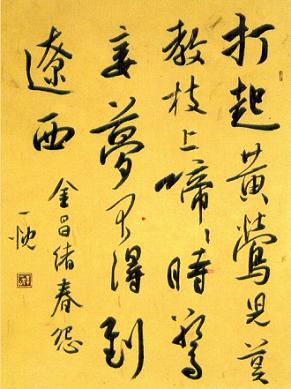 打起黃鶯兒莫
教枝上啼〻時驚
妾夢不得到
遼西
金昌緒春怨